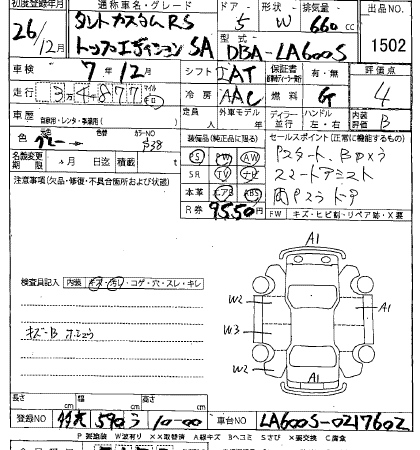 初度登録年月 通称車名・グレード ドア 形状 排気量 出品NO
26/12月 タントカスタムRS 5 W 660cc
トップエディションSA 型式 DBA-LA600S 1502
車検 7年12月 シフト IAT 保証書 有・無 評価点
走行 34877 マイル キロ 冷房 AAC 燃料 G 4
車歴 自家用・レンタ・事業用( ) 定員 人 外車モデル 年 ディーラー 並行 ハンドル 左・右 内装評価 B
色 グレー カラーNO 装備品(純正品に限る) セールスポイント(正常に機能するもの)
名義変更期限 月 日迄 積載 t PS PW AW Pスタート、Bカメラ
SR TV ナビ スマートアシスト
注意事項(欠品・修復・不具合箇所および状態) 本革 エアB ABS 両Pスライドドア
R券 9550 FW キズ・ヒビ割・リペア跡・X要
A1
検査員記入 内装 キズ・汚レ・コゲ・穴・スレ・キレ
W2
A1
W3
キズ-B
W2
A1
長さ cm 幅 cm 高さ cm
登録NO 590 10-00 車台NO LA600S-0217602
P要塗装 W波有リ XX取替済 A線キズ Bヘコミ Sさび X要交換 C腐食